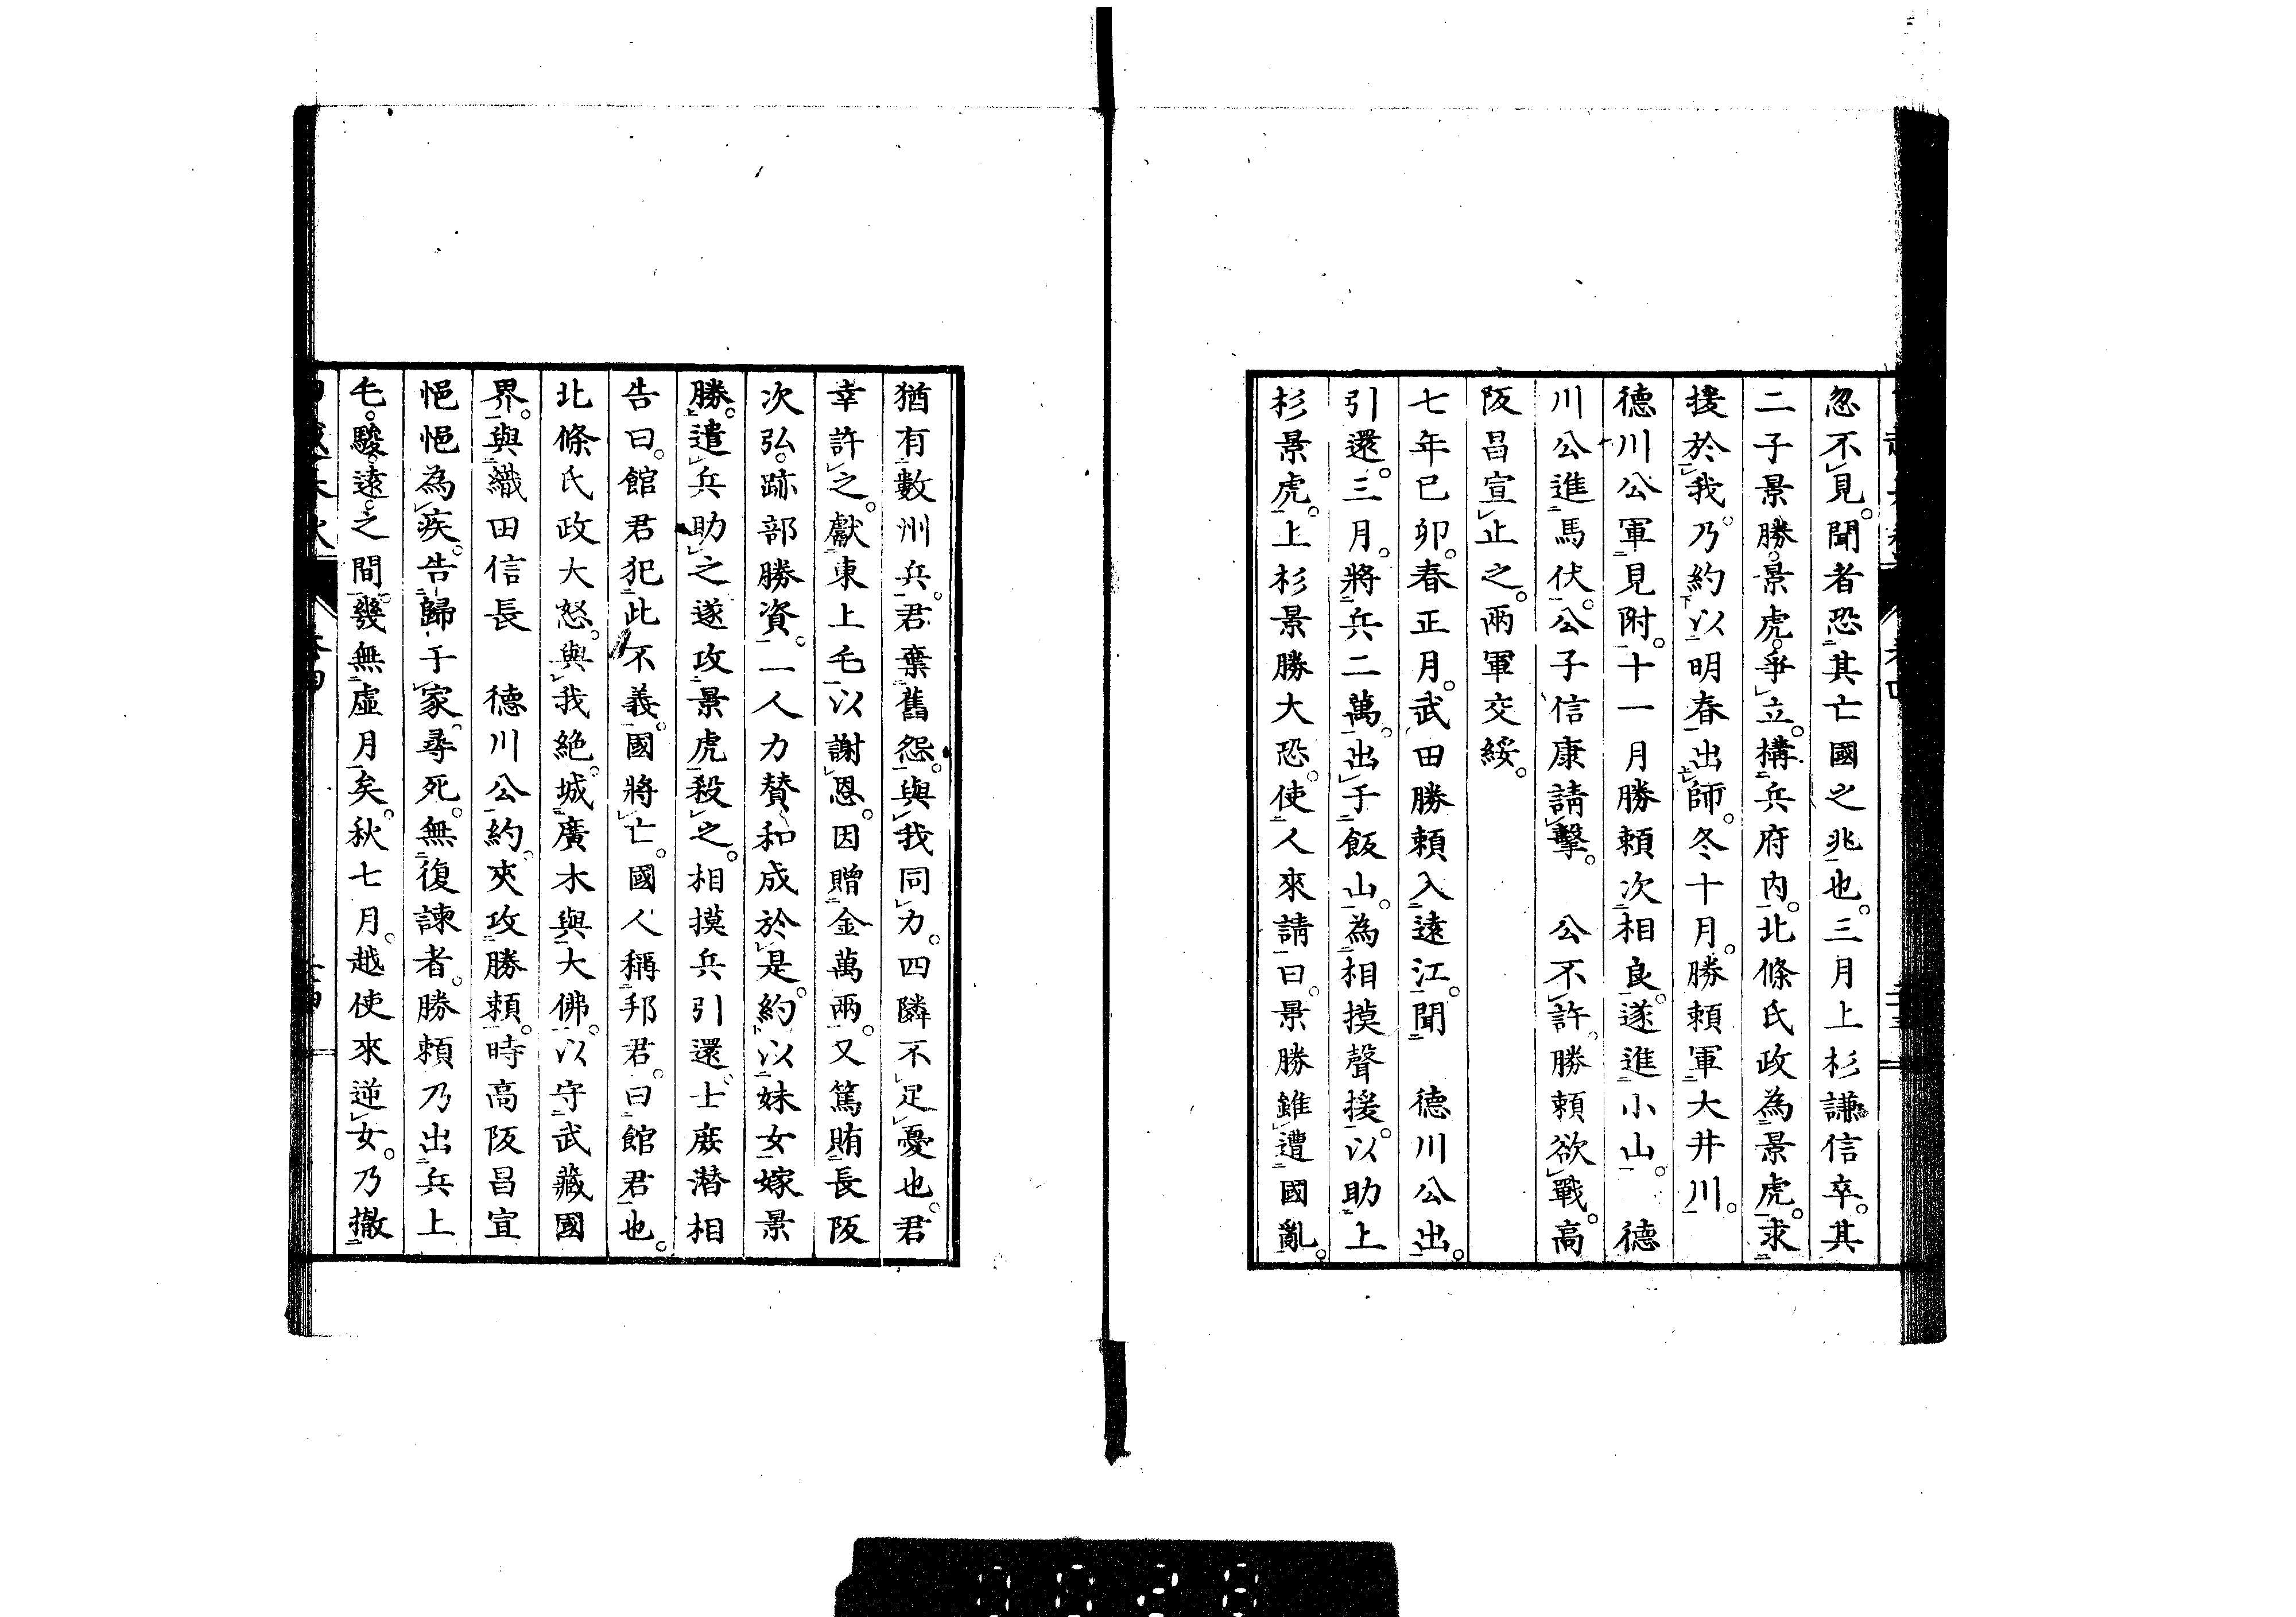 忽不見。聞者恐其亡國之兆也。三月上杉謙信卒。其
二子景勝。景虎。爭立。構兵府內。北條氏政為景虎。求
援於我。乃約以明春出師。冬十月。勝賴軍大井川。
德川公軍見附。十一月勝賴次相良。遂進小山。　德
川公進馬伏。公子信康請擊。　公不許。勝賴欲戰。高
阪昌宣止之。兩軍交綏。
七年已卯。春正月。武田勝賴入遠江。聞　德川公出。
引還。三月。將兵二萬。出于飯山。為相摸聲援。以助上
杉景虎。上杉景勝大恐。使人來請曰。景勝雖遭國亂。
猶有數州兵。君棄舊怨。與我同力。四隣不足憂也。君
幸許之。獻東上毛以謝恩。因贈金萬兩。又篤賄長阪
次弘。跡部勝資。一人力贊和成於是。約以妹女嫁景
勝。遣兵助之遂攻景虎殺之。相摸兵引還。士庶潛相
告曰。館君犯此不義。國將亡。國人稱邦君。曰館君也。
北條氏政大怒。與我絕。城廣木與大佛。以守武藏國
界。與織田信長　德川公約。夾攻勝賴。時高阪昌宣
悒悒為疾。告歸于家。尋死。無復諫者。勝賴乃出兵上
毛。駿。遠。之間。幾無虛月矣。秋七月。越使來逆女。乃撤